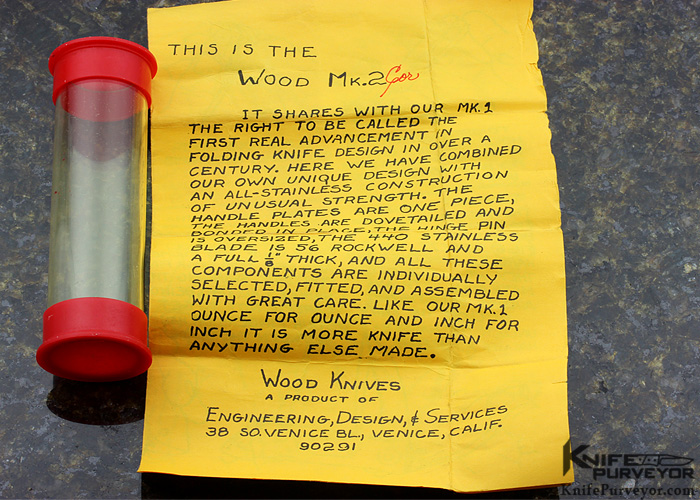 THIS IS THE
WOOD MK.2
IT SHARES WITH OUR MK.1
THE RIGHT TO BE CALLED THE
FIRST REAL ADVANCEMENT IN
FOLDING KNIFE DESIGN IN OVER A
CENTURY. HERE WE HAVE COMBINED
OUR OWN UNIQUE DESIGN WITH
AN ALL-STAINLESS CONSTRUCTION
OF UNUSUAL STRENGTH. THE
HANDLE PLATES ARE ONE PIECE,
THE HANDLES ARE DOVETAILED AND
BONDED IN PLACE, THE HINGE PIN
IS OVERSIZED, THE 440 STAINLESS
BLADE IS 56 ROCKWELL AND
A FULL 1/8" THICK, AND ALL THESE
COMPONENTS ARE INDIVIDUALLY
SELECTED, FITTED, AND ASSEMBLED
WITH GREAT CARE. LIKE OUR MK.1
OUNCE FOR OUNCE AND INCH FOR
INCH IT IS MORE KNIFE THAN
ANYTHING ELSE MADE.
WOOD KNIVES
A PRODUCT OF
ENGINEERING, DESIGN, & SERVICES
38 SO. VENICE BL., VENICE, CALIF.
90291
KNIFE
PURVEYOR
KnifePurveyor.com